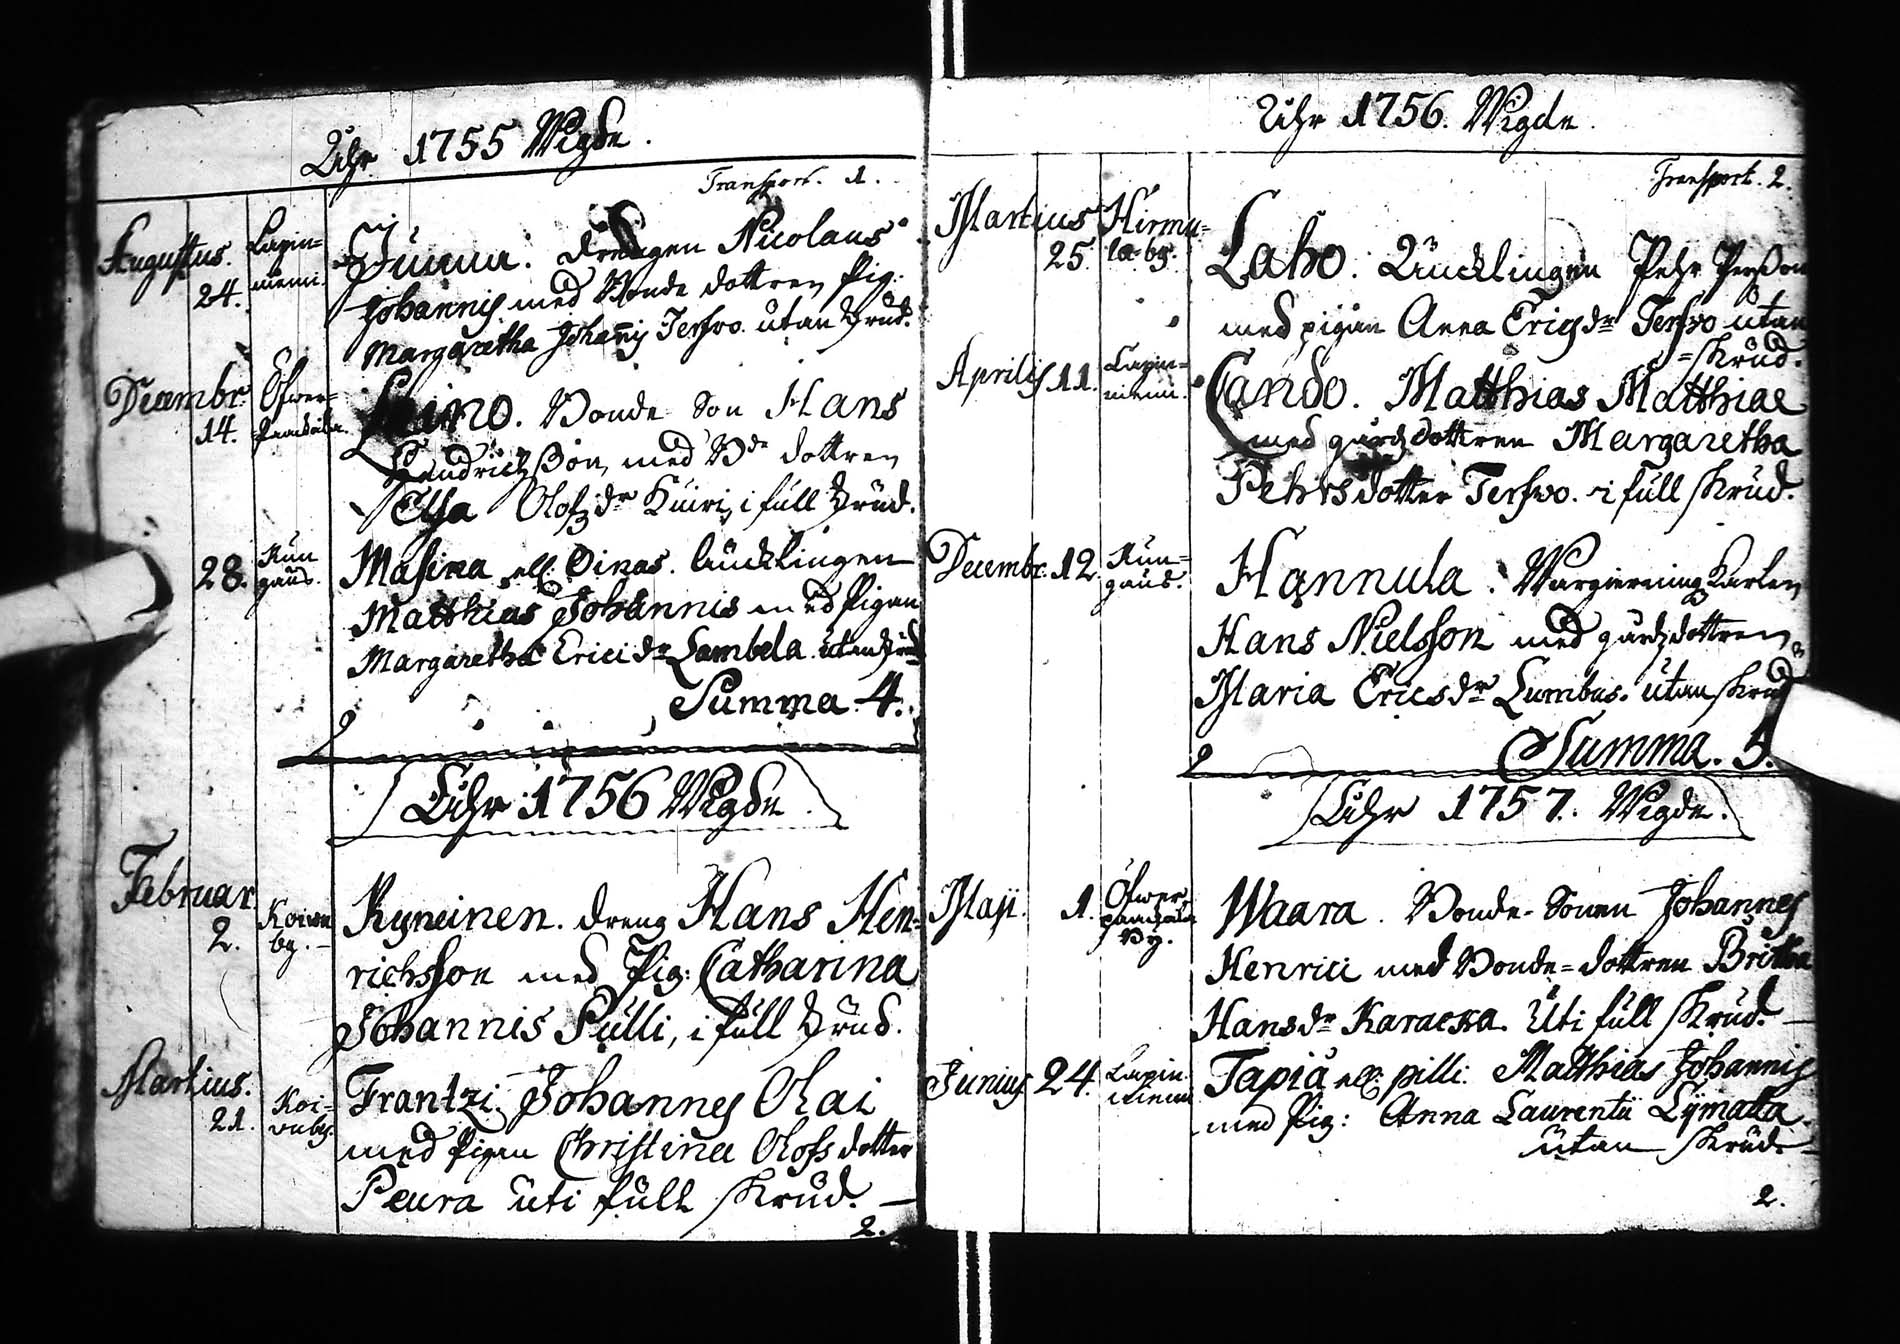 Åhr 1755 Wigde.
Transport. 1.
Augustus. 24. Lapin=
niemi.
Junnu. Drengen Nicolaus
Johannis med Bonde dottren Pig.
Margaretha Johannis Terfwo utan Skrud.
Decembr. 14. Öfwer=
Leino. Bonde Son Hans
Hendrichsson, med Bde dottren
Elsa Olofsdr Kuiri, i full Skrud.
28. Kun
gaus.
Masina ell. Oinas. Encklingen
Matthias Johannis med Pigan
Margaretha Erici dr Lambela. utan Skrud
Summa 4.
Åhr 1756 Wigde
Februar 2. Koiwu
by.
Kyneinen. dreng Hans Hen-
richsson med Pig: Catharina
Johannis Pulli, i full Skrud.
Martius. 21. Koi=
wuby.
Frantzi Johannes Olai
med Pigan Christina Olofs dotter
Peura uti full Skrud.
2.
Åhr 1756. Wigde.
Transport. 2.
Martius 25. Hirmu=
la by.
Laho. Encklingen Pehr Persson
med pigan Anna Ericsdr Terfwo utan
=Skrud.
Aprilis 11. Lapin=
niemi.
Cando. Matthias Matthiae
med gårdz dottren Margaretha
Pehrsdotter Terfwo. i full Skrud.
Decembr. 12. Kun=
gaus.
Hannula. Wargierning Karlen
Hans Nielsson med gårdzdottren
Maria Ericsdr Lumbus. utan Skrud
Summa. 5.
Åhr 1757. Wigde.
Maji. 1. Öfwer
By.
Waara. Bonde-Sonen Johannes
Henrici med Bonde=dottren Britha
Hansdr Karaexa. Uti full Skrud.
Junius 24. Lapin
niemi
Tapia ell. pilli. Matthias Johannis
med Pig: Anna Laurentii Lymatta.
utan Skrud.
2.